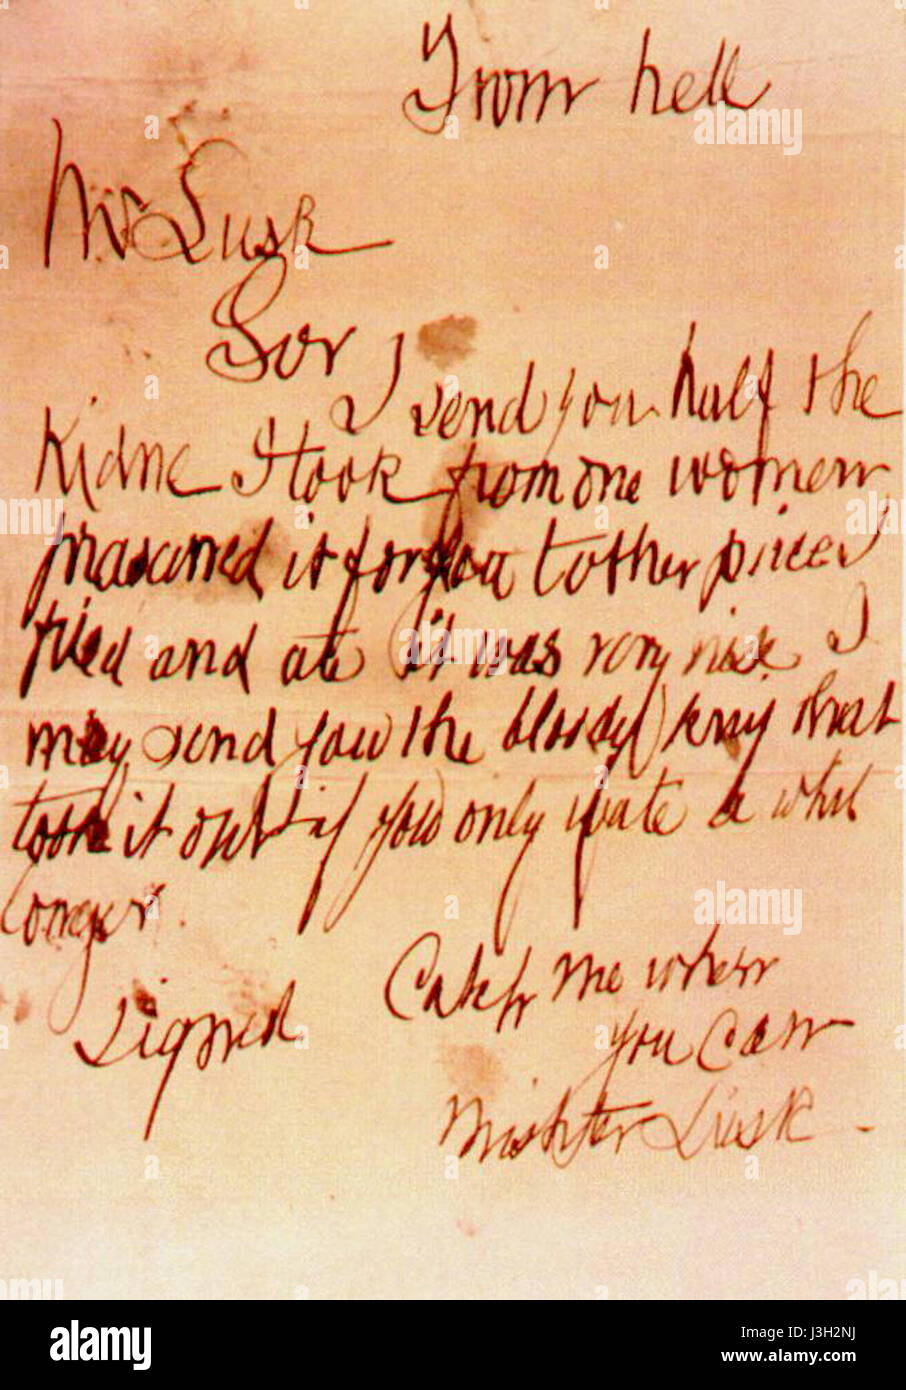 From hell
Mr Lusk
Sor
I send you half the
Kidne I took from one women
prasarved it for you tother piece I
fried and ate it was very nise I
may send you the bloody knif that
took it out if you only wate a whil
longer.
signed
Catch me when
you can
Mishter Lusk -
a
alamy
alamy stock photo
J3H2NJ
www.alamy.com